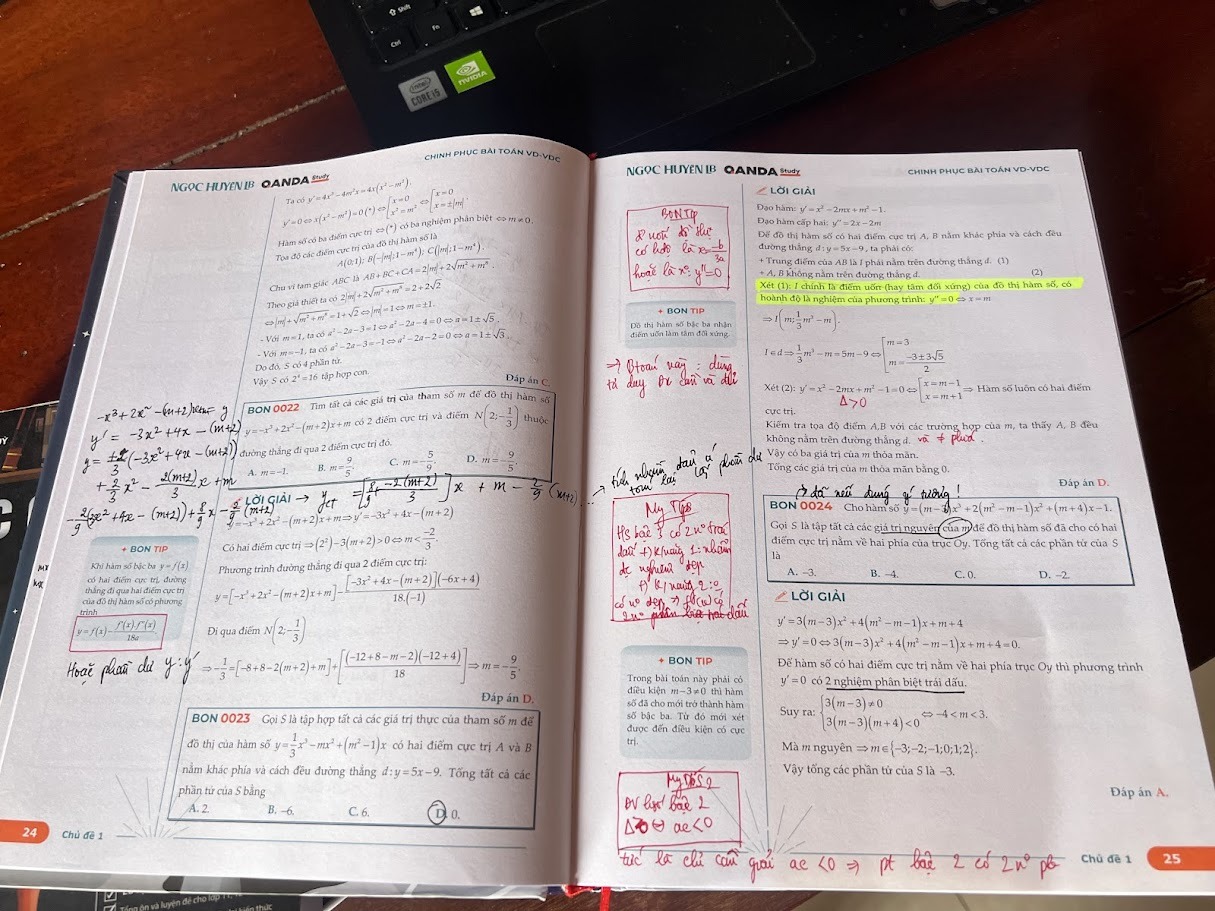 Shift
Fn
Ctrl
intel
CORE i5
NVIDIA
CHINH PHỤC BÀI TOÁN VD-VDC
NGỌC HUYỀN LB QANDA Study
Ta có y'=4x³−4m²x=4x(x²−m²).
y'=0⇔x(x²−m²)=0(*)⇔[x=0; x²=m²⇔[x=0; x=±|m|.
Hàm số có ba điểm cực trị ⇔(*) có ba nghiệm phân biệt ⇔m≠0.
Tọa độ các điểm cực trị của đồ thị hàm số là
A(0;1); B(−|m|;1−m⁴); C(|m|;1−m⁴).
Chu vi tam giác ABC là AB+BC+CA=2|m|+2√(m²+m⁸).
Theo giả thiết ta có 2|m|+2√(m²+m⁸)=2+2√2
⇔|m|+√(m²+m⁸)=1+√2⇔|m|=1⇔m=±1.
- Với m=1, ta có a²−2a−3=1⇔a²−2a−4=0⇔a=1±√5.
- Với m=−1, ta có a²−2a−3=−1⇔a²−2a−2=0⇔a=1±√3.
Do đó, S có 4 phần tử.
Vậy S có 2⁴=16 tập hợp con.
Đáp án C.
BON 0022 Tìm tất cả các giá trị của tham số m để đồ thị hàm số
y=−x³+2x²−(m+2)x+m có 2 điểm cực trị và điểm N(2;−1/3) thuộc
đường thẳng đi qua 2 điểm cực trị đó.
A. m=−1. B. m=9/5. C. m=−5/9. D. m=−9/5.
y' = −3x² + 4x − (m+2)
(−3x² + 4x − (m+2))
+ 2/3 x² − 2(m+2)/3 x + m
LỜI GIẢI
→ y_CT = [8/9 + −2(m+2)/3] x + m − 2/9 (m+2).
y=−x³+2x²−(m+2)x+m⇒y'=−3x²+4x−(m+2)
Có hai điểm cực trị ⇒(2²)−3(m+2)>0⇔m<−2/3.
Phương trình đường thẳng đi qua 2 điểm cực trị:
y=[−x³+2x²−(m+2)x+m]−[−3x²+4x−(m+2)](−6x+4)/18.(−1)
Đi qua điểm N(2;−1/3)
⇒−1/3=[−8+8−2(m+2)+m]+[(−12+8−m−2)(−12+4)/18]⇒m=−9/5.
Đáp án D.
+ BON TIP
Khi hàm số bậc ba y=f(x)
có hai điểm cực trị, đường
thẳng đi qua hai điểm cực trị
của đồ thị hàm số có phương
trình
y=f(x)−f'(x).f''(x)/18a
Hoặc phần dư y:y'
BON 0023 Gọi S là tập hợp tất cả các giá trị thực của tham số m để
đồ thị của hàm số y=1/3x³−mx²+(m²−1)x có hai điểm cực trị A và B
nằm khác phía và cách đều đường thẳng d:y=5x−9. Tổng tất cả các
phần tử của S bằng
A. 2. B. −6. C. 6. D. 0.
24 Chủ đề 1
NGỌC HUYỀN LB QANDA Study
CHINH PHỤC BÀI TOÁN VD-VDC
LỜI GIẢI
Đạo hàm: y'=x²−2mx+m²−1.
Đạo hàm cấp hai: y''=2x−2m
Để đồ thị hàm số có hai điểm cực trị A, B nằm khác phía và cách đều
đường thẳng d:y=5x−9, ta phải có:
+ Trung điểm của AB là I phải nằm trên đường thẳng d. (1)
+ A, B không nằm trên đường thẳng d. (2)
Xét (1): I chính là điểm uốn (hay tâm đối xứng) của đồ thị hàm số, có
hoành độ là nghiệm của phương trình: y''=0⇔x=m
⇒I(m;1/3m³−m).
I∈d⇒1/3m³−m=5m−9⇔[m=3; m=(−3±3√5)/2
Xét (2): y'=x²−2mx+m²−1=0⇔[x=m−1; x=m+1⇒ Hàm số luôn có hai điểm
Δ>0
cực trị.
Kiểm tra tọa độ điểm A,B với các trường hợp của m, ta thấy A, B đều
không nằm trên đường thẳng d. và ≠ phía.
Vậy có ba giá trị của m thỏa mãn.
Tổng các giá trị của m thỏa mãn bằng 0.
Đáp án D.
BON Tip
hoặc là x⁰: y''=0
+ BON TIP
Đồ thị hàm số bậc ba nhận
điểm uốn làm tâm đối xứng.
→ Btoán này : dùng
tư duy
My Tips
→ đã nếu dùng ý tưởng!
BON 0024 Cho hàm số y=(m−3)x³+2(m²−m−1)x²+(m+4)x−1.
Gọi S là tập tất cả các giá trị nguyên của m để đồ thị hàm số đã cho có hai
điểm cực trị nằm về hai phía của trục Oy. Tổng tất cả các phần tử của S
là
A. −3. B. −4. C. 0. D. −2.
LỜI GIẢI
y'=3(m−3)x²+4(m²−m−1)x+m+4
⇒y'=0⇔3(m−3)x²+4(m²−m−1)x+m+4=0.
Để hàm số có hai điểm cực trị nằm về hai phía trục Oy thì phương trình
y'=0 có 2 nghiệm phân biệt trái dấu.
Suy ra: {3(m−3)≠0; 3(m−3)(m+4)<0⇔−4<m<3.
Mà m nguyên ⇒m∈{−3;−2;−1;0;1;2}.
Vậy tổng các phần tử của S là −3.
Đáp án A.
+ BON TIP
Trong bài toán này phải có
điều kiện m−3≠0 thì hàm
số đã cho mới trở thành hàm
số bậc ba. Từ đó mới xét
được đến điều kiện có cực
trị.
ac<0
tức là chỉ cần giải ac<0 ⇒ pt bậc 2 có 2n⁰ pb
Chủ đề 1 25